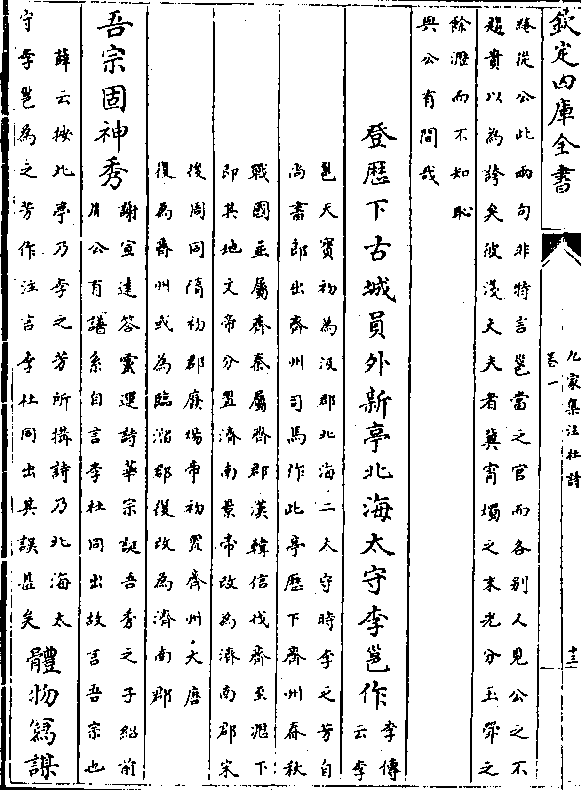 欽定四庫全書
九家集注杜詩
卷一
十三
從公此兩句非特言邕當之官而各別人見公之不
趨貴以為誇矣彼淺丈夫者冀宵燭之末光分玉斝之
餘瀝而不知恥
與公有間哉
登歴下古城員外新亭北海太守李邕作
李傳
云李
邕天寳初為汲郡北海二太守時李之芳自
尚書郎出齊州司馬作此亭歴下齊州春秋
戰國並屬齊秦屬齊郡漢韓信伐齊至歴下
即其地文帝分置濟南景帝改為濟南郡宋
後周同隋初郡廢煬帝初置齊州大唐
復為齊州或為臨淄郡復改為濟南郡
吾宗固神秀
謝宣遠答靈運詩華宗誕吾秀之子紹前
脩公有譜系自言李杜同出故言吾宗也
薛云按此亭乃李之芳所搆詩乃北海太
守李邕為之芳作注言李杜同出其誤甚矣
體物寫謀